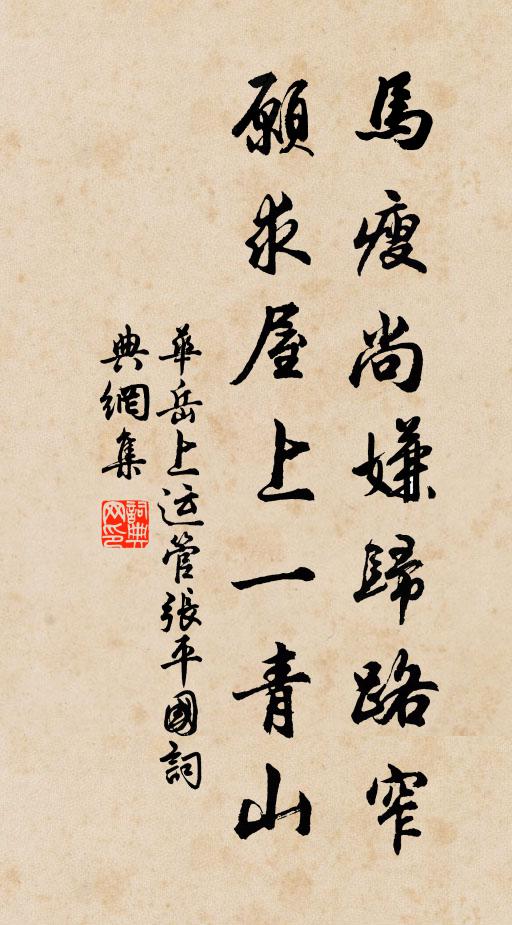 馬瘦尚嫌歸路窄
願求屋上一青山
華岳上运管張平國詞
典網集
詞典
网印